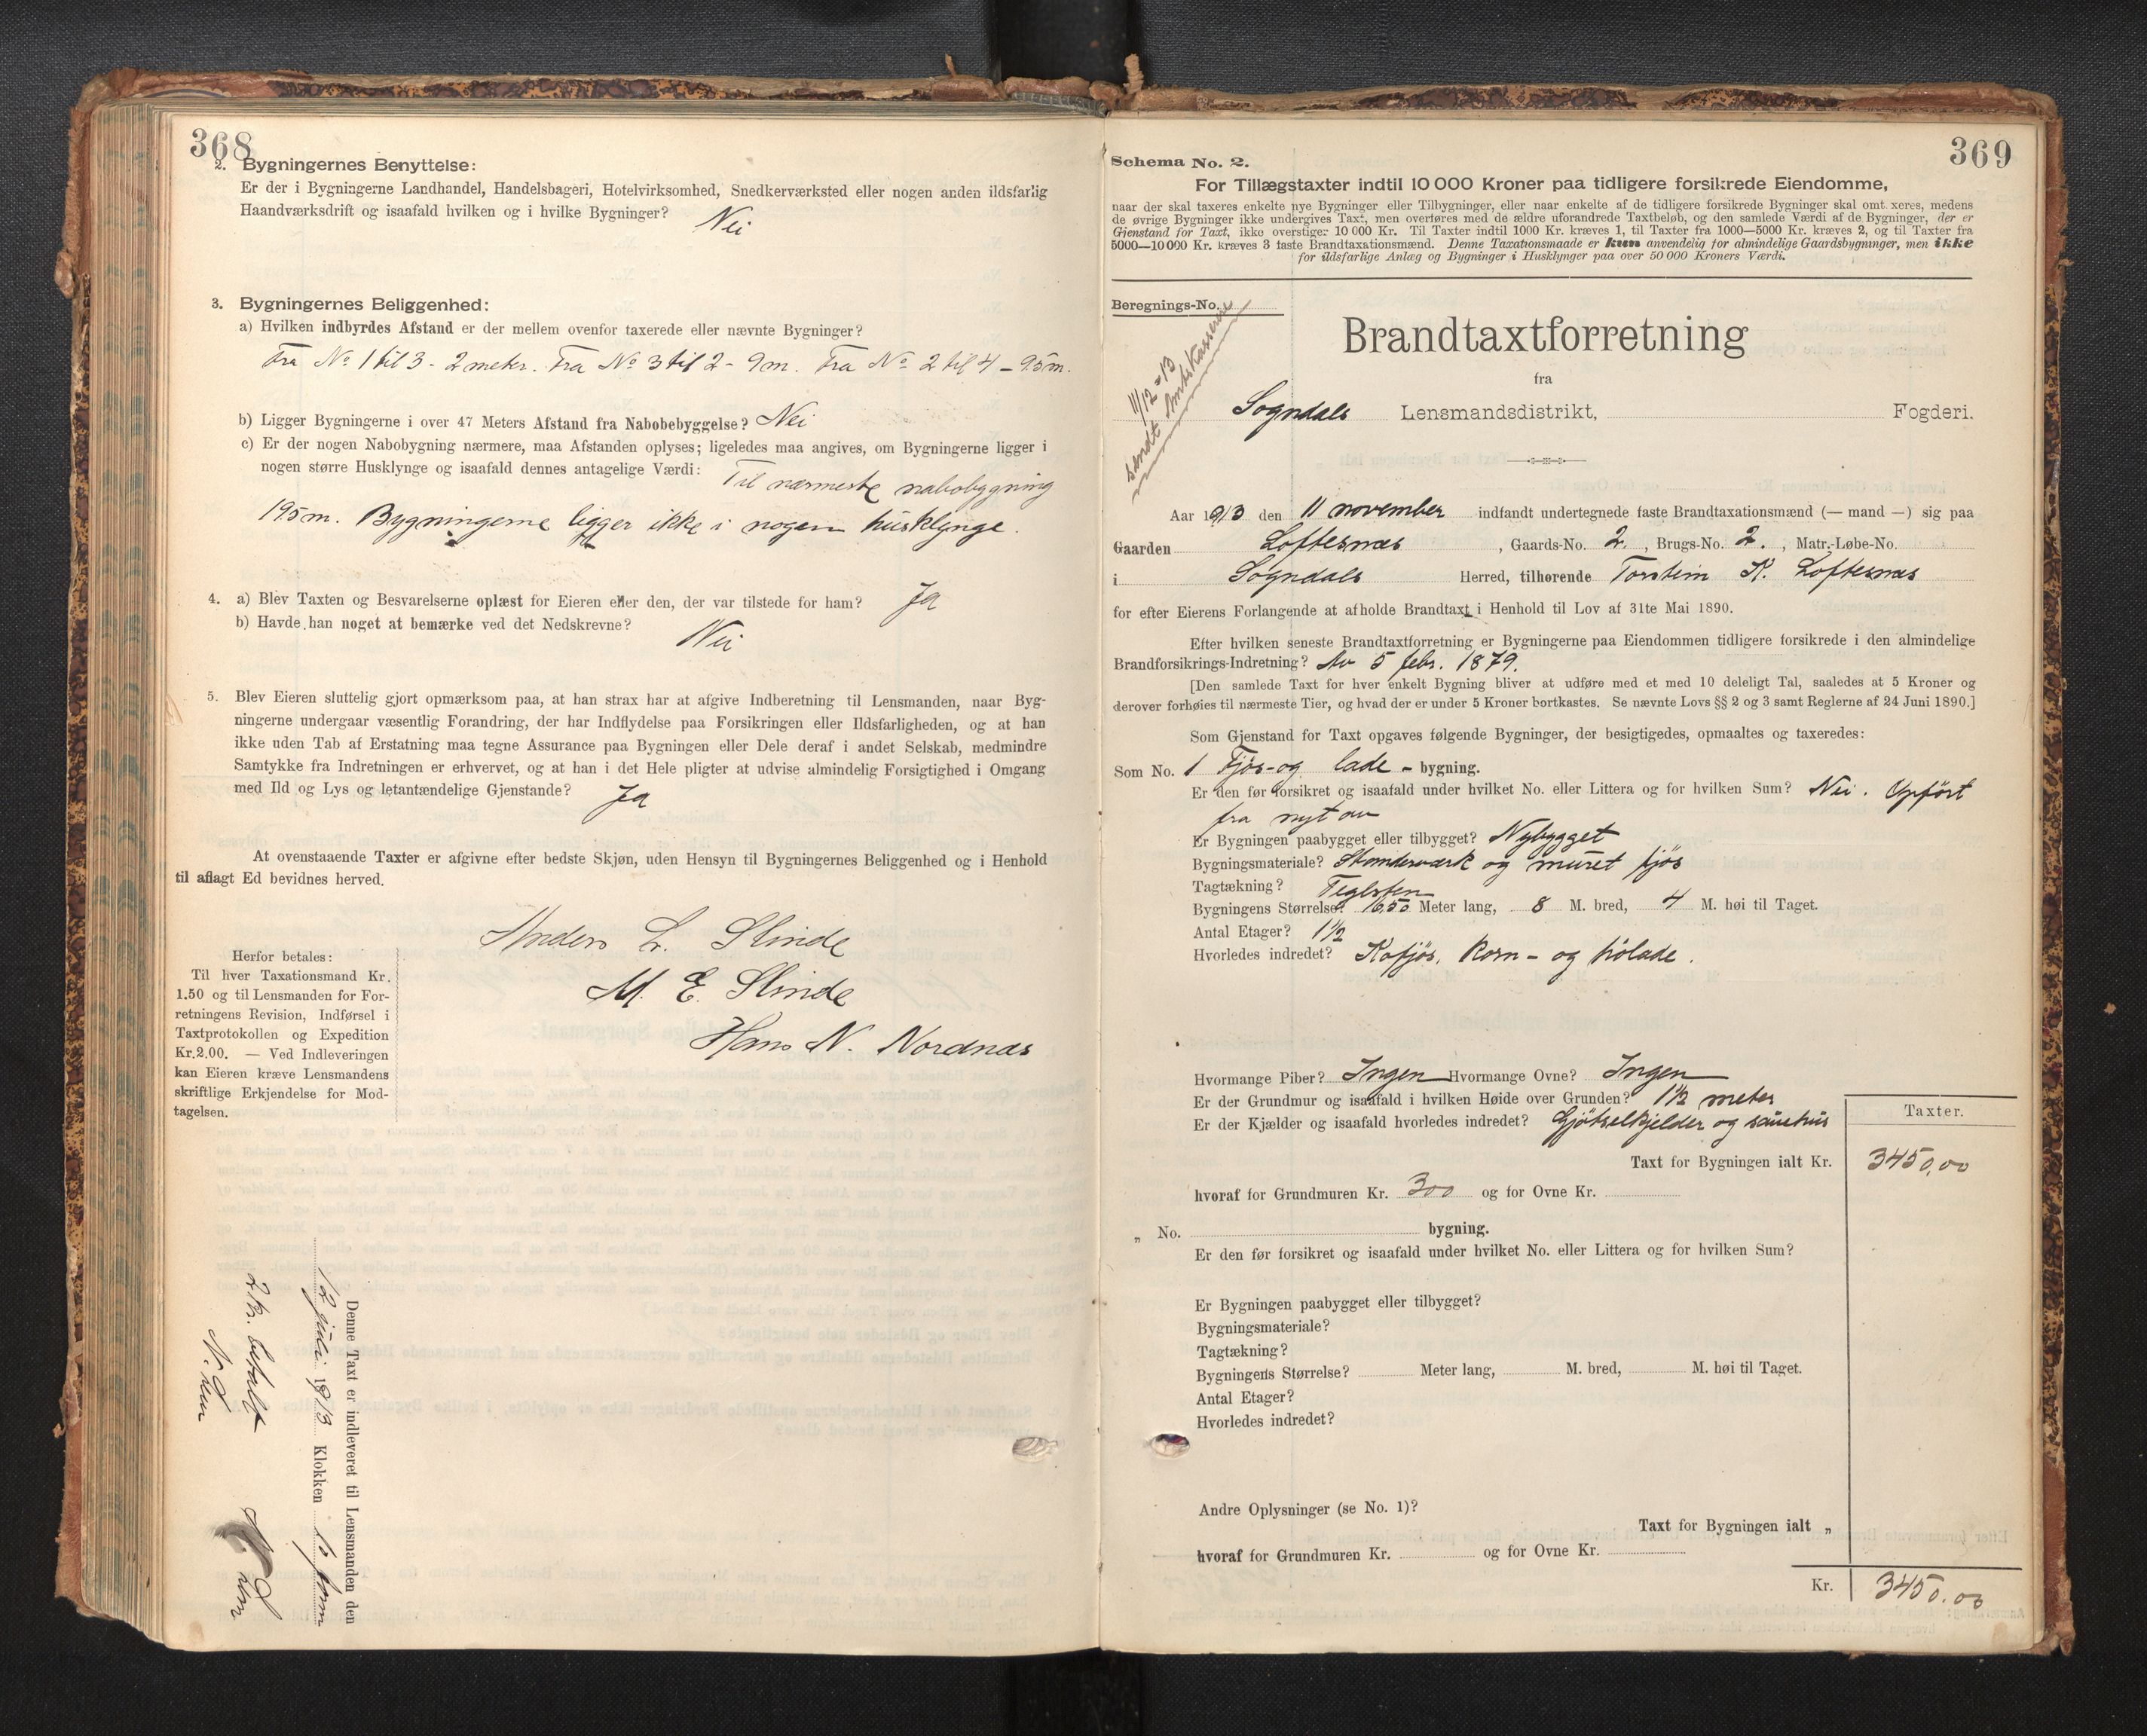 368
2. Bygningernes Benyttelse:
Er der i Bygningerne Landhandel, Handelsbageri, Hotelvirksomhed, Snedkerværksted eller nogen anden ildsfarlig
Haandværksdrift og isaafald hvilken og i hvilke Bygninger? Nei
3. Bygningernes Beliggenhed:
a) Hvilken indbyrdes Afstand er der mellem ovenfor taxerede eller nævnte Bygninger?
Fra No 1 til 3 - 2 meter. Fra No 3 til 2 - 9 m. Fra No 2 til 4 - 9.5 m.
b) Ligger Bygningerne i over 47 Meters Afstand fra Nabobebyggelse? Nei
c) Er der nogen Nabobygning nærmere, maa Afstanden oplyses; ligeledes maa angives, om Bygningerne ligger i
nogen større Husklynge og isaafald dennes antagelige Værdi: Til nærmeste nabobygning
19.5 m. Bygningerne ligger ikke i nogen husklynge.
4. a) Blev Taxten og Besvarelserne oplæst for Eieren eller den, der var tilstede for ham? Ja
b) Havde han noget at bemærke ved det Nedskrevne? Nei
5. Blev Eieren sluttelig gjort opmærksom paa, at han strax har at afgive Indberetning til Lensmanden, naar Byg-
ningerne undergaar væsentlig Forandring, der har Indflydelse paa Forsikringen eller Ildsfarligheden, og at han
ikke uden Tab af Erstatning maa tegne Assurance paa Bygningen eller Dele deraf i andet Selskab, medmindre
Samtykke fra Indretningen er erhvervet, og at han i det Hele pligter at udvise almindelig Forsigtighed i Omgang
med Ild og Lys og letantændelige Gjenstande? Ja
At ovenstaaende Taxter er afgivne efter bedste Skjøn, uden Hensyn til Bygningernes Beliggenhed og i Henhold
til aflagt Ed bevidnes herved.
Anders L. Slinde
M. E. Slinde
Hans N. Nordnæs
Herfor betales:
Til hver Taxationsmand Kr.
1.50 og til Lensmanden for For-
retningens Revision, Indførsel i
Taxtprotokollen og Expedition
Kr.2.00. — Ved Indleveringen
kan Eieren kræve Lensmandens
skriftlige Erkjendelse for Mod-
tagelsen.
Denne Taxt er indleveret til Lensmanden den
12 juli 1913 Klokken 10 form
2 kr. betalt
369
Schema No. 2.
For Tillægstaxter indtil 10 000 Kroner paa tidligere forsikrede Eiendomme,
naar der skal taxeres enkelte nye Bygninger eller Tilbygninger, eller naar enkelte af de tidligere forsikrede Bygninger skal omt xeres, medens
de øvrige Bygninger ikke undergives Taxt, men overføres med de ældre uforandrede Taxtbeløb, og den samlede Værdi af de Bygninger, der er
Gjenstand for Taxt, ikke overstiger 10 000 Kr. Til Taxter indtil 1000 Kr. kræves 1, til Taxter fra 1000—5000 Kr. kræves 2, og til Taxter fra
5000—10 000 Kr. kræves 3 faste Brandtaxationsmænd. Denne Taxationsmaade er kun anvendelig for almindelige Gaardsbygninger, men ikke
for ildsfarlige Anlæg og Bygninger i Husklynger paa over 50 000 Kroners Værdi.
Beregnings-No.
11/12-13
sendt Amtskasserer
Brandtaxtforretning
fra
Sogndals Lensmandsdistrikt, Fogderi.
Aar 1913 den 11 november indfandt undertegnede faste Brandtaxationsmænd (— mand —) sig paa
Gaarden Loftesnæs, Gaards-No. 2, Brugs-No. 2., Matr.-Løbe-No.
i Sogndals Herred, tilhørende Torstein K. Loftesnæs
for efter Eierens Forlangende at afholde Brandtaxt i Henhold til Lov af 31te Mai 1890.
Efter hvilken seneste Brandtaxtforretning er Bygningerne paa Eiendommen tidligere forsikrede i den almindelige
Brandforsikrings-Indretning? Av 5 febr. 1879.
[Den samlede Taxt for hver enkelt Bygning bliver at udføre med et med 10 deleligt Tal, saaledes at 5 Kroner og
derover forhøies til nærmeste Tier, og hvad der er under 5 Kroner bortkastes. Se nævnte Lovs §§ 2 og 3 samt Reglerne af 24 Juni 1890.]
Som Gjenstand for Taxt opgaves følgende Bygninger, der besigtigedes, opmaaltes og taxeredes:
Som No. 1 Fjös- og lade - bygning.
Er den før forsikret og isaafald under hvilket No. eller Littera og for hvilken Sum? Nei. Opfört
fra nyt av
Er Bygningen paabygget eller tilbygget? Nybygget
Bygningsmateriale? Standerværk og muret fjös
Tagtækning? Teglsten
Bygningens Størrelse? 16,50 Meter lang, 8 M. bred, 4 M. høi til Taget.
Antal Etager? 1½
Hvorledes indredet? Kofjös, korn- og hölade.
Hvormange Piber? Ingen Hvormange Ovne? Ingen
Er der Grundmur og isaafald i hvilken Høide over Grunden? 1½ meter
Er der Kjælder og isaafald hvorledes indredet? Gjötselkjelder og sauehus
Taxter.
Taxt for Bygningen ialt Kr. 3450,00
hvoraf for Grundmuren Kr. 300 og for Ovne Kr.
„ No. bygning.
Er den før forsikret og isaafald under hvilket No. eller Littera og for hvilken Sum?
Er Bygningen paabygget eller tilbygget?
Bygningsmateriale?
Tagtækning?
Bygningens Størrelse? Meter lang, M. bred, M. høi til Taget.
Antal Etager?
Hvorledes indredet?
Andre Oplysninger (se No. 1)?
Taxt for Bygningen ialt „
hvoraf for Grundmuren Kr. og for Ovne Kr.
Kr. 3450.00